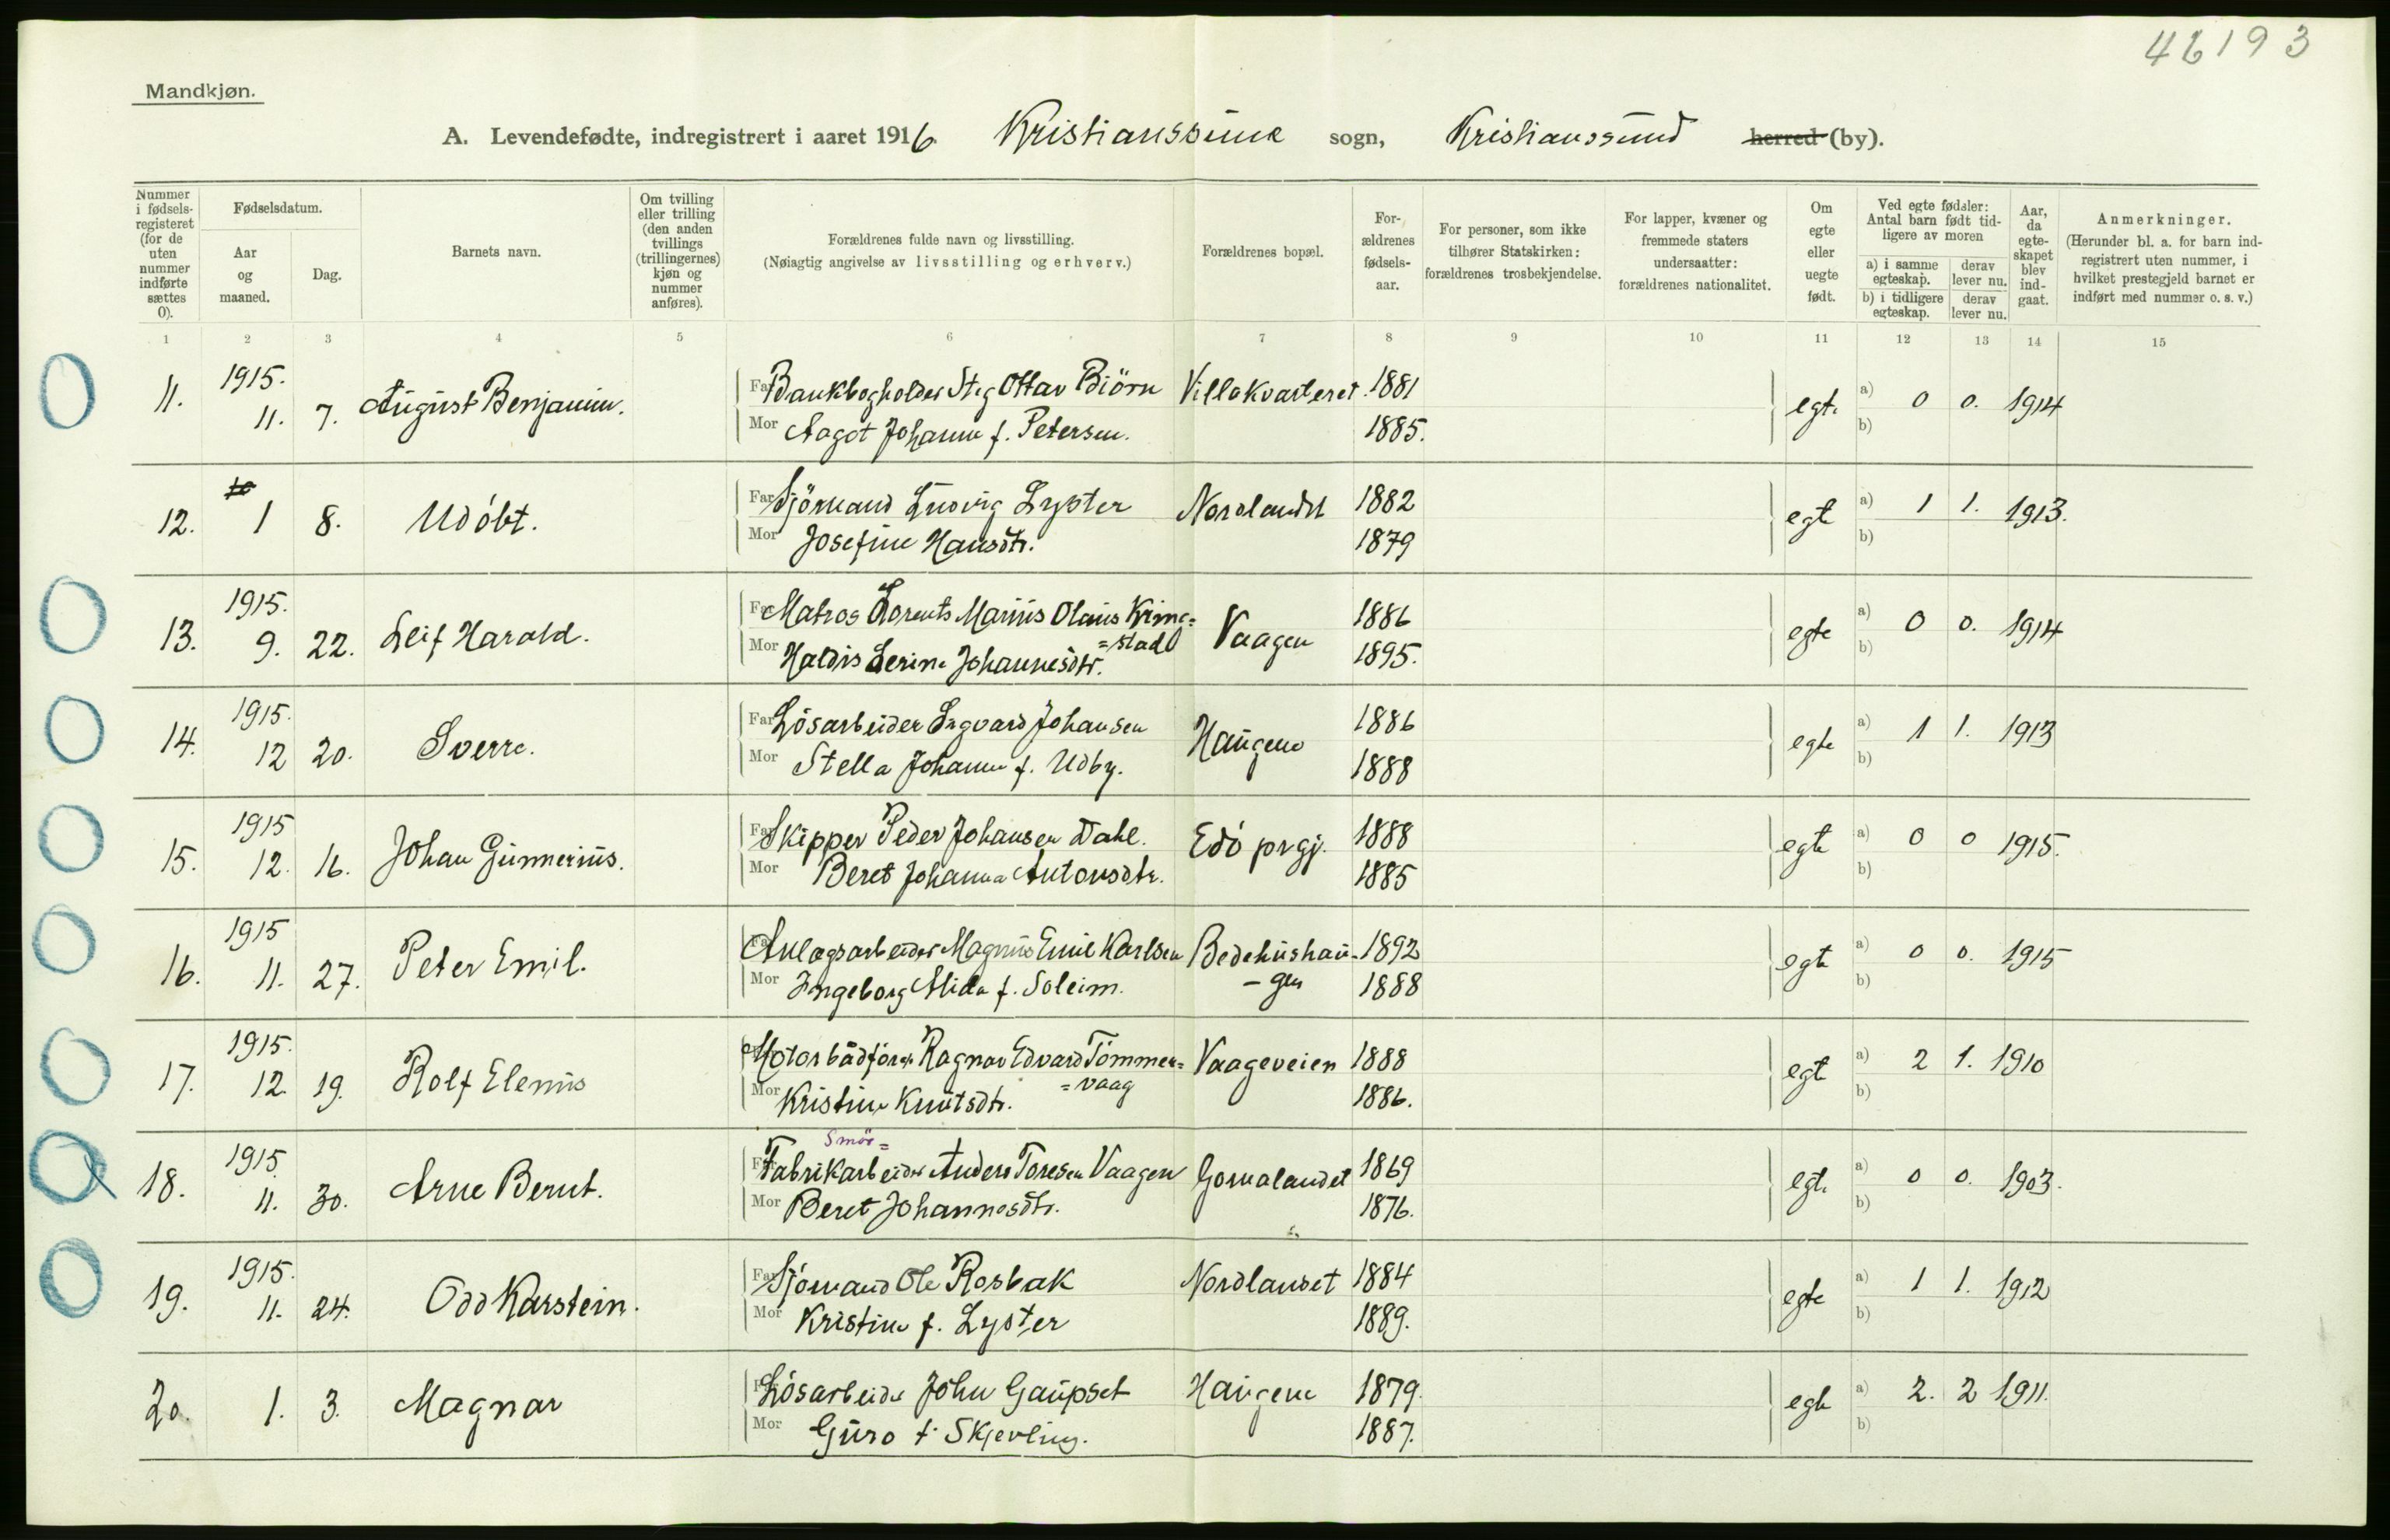 46193
Mandkjøn.
A. Levendefødte, indregistrert i aaret 1916. Kristianssund sogn, Kristianssund herred (by).
Nummer i fødsels-registeret (for de uten nummer indførte sættes 0).
Fødselsdatum.
Aar og maaned.
Dag.
Barnets navn.
Om tvilling eller trilling (den anden tvillings (trillingernes) kjøn og nummer anføres).
Forældrenes fulde navn og livsstilling.
(Nøiagtig angivelse av livsstilling og erhverv.)
Forældrenes bopæl.
For-ældrenes fødsels-aar.
For personer, som ikke tilhører Statskirken: forældrenes trosbekjendelse.
For lapper, kvæner og fremmede staters undersaatter: forældrenes nationalitet.
Om egte eller uegte født.
Ved egte fødsler: Antal barn født tid-ligere av moren
a) i samme egteskap. derav lever nu.
b) i tidligere egteskap. derav lever nu.
Aar, da egte-skapet blev ind-gaat.
Anmerkninger.
(Herunder bl. a. for barn ind-registrert uten nummer, i hvilket prestegjeld barnet er indført med nummer o. s. v.)
1 2 3 4 5 6 7 8 9 10 11 12 13 14 15
11. 1915. 11. 7. August Benjamin. Far Bankbogholder Stig Ottar Biörn Villakvarteret. 1881 egt. a) 0 0. 1914
Mor Aagot Johanne f. Petersen. 1885. b)
12. 10 1 8. Udöbt. Far Sjömand Ludvig Lyster Nordlandet 1882 egte a) 1 1. 1913.
Mor Josefine Hansdtr. 1879 b)
13. 1915. 9. 22. Leif Harald. Far Matros Lorents Marius Olaus Kring=
=stad Vaagen 1886 egte a) 0 0. 1914
Mor Haldis Serine Johannesdtr. 1895. b)
14. 1915. 12 20. Sverre. Far Lösarbeider Ingvard Johansen Haugene 1886 egte a) 1 1. 1913
Mor Stella Johanne f. Udby. 1888 b)
15. 1915 12. 16. Johan Gunnerius. Far Skipper Peder Johansen Dahl. Edö prgj. 1888 egte a) 0 0 1915.
Mor Beret Johanna Antonsdtr. 1885 b)
16. 1915 11. 27. Peter Emil. Far Anlægsarbeider Magnus Emil Karlsen Bedehushau- 1892 egte a) 0 0. 1915
Mor Ingeborg Alida f. Soleim. -gen 1888 b)
17. 1915. 12. 19. Rolf Elenius Far Motorbådförer Ragnar Edvard Tömmer=
=vaag Vaageveien 1888 egt a) 2 1. 1910
Mor Kristine Knutsdtr. 1886. b)
Smör=
18. 1915. 11. 30. Arne Bernt. Far Fabrikarbeider Anders Toresen Vaagen Gomalandet 1869 egt. a) 0 0. 1903.
Mor Beret Johannesdtr. 1876. b)
19. 1915. 11. 24. Odd Karstein. Far Sjömand Ole Rosbak Nordlandet 1884 egte a) 1 1. 1912
Mor Kristine f. Lyster 1889. b)
20. 1. 3. Magnar Far Lösarbeider John Gaupset Haugene 1879. egte a) 2. 2 1911.
Mor Guro f. Skjevling. 1887. b)